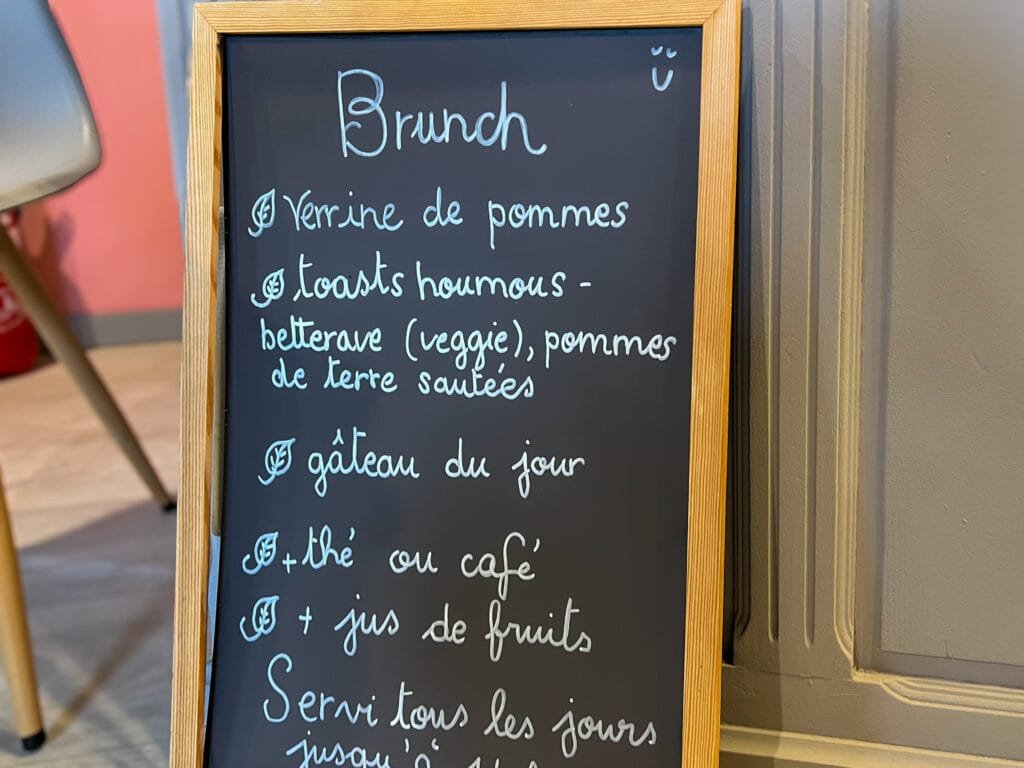 Brunch
Verrine de pommes
toasts houmous -
betterave (veggie), pommes
de terre sautées
gâteau du jour
+ thé ou café
+ jus de fruits
Servi tous les jours
jusqu'à